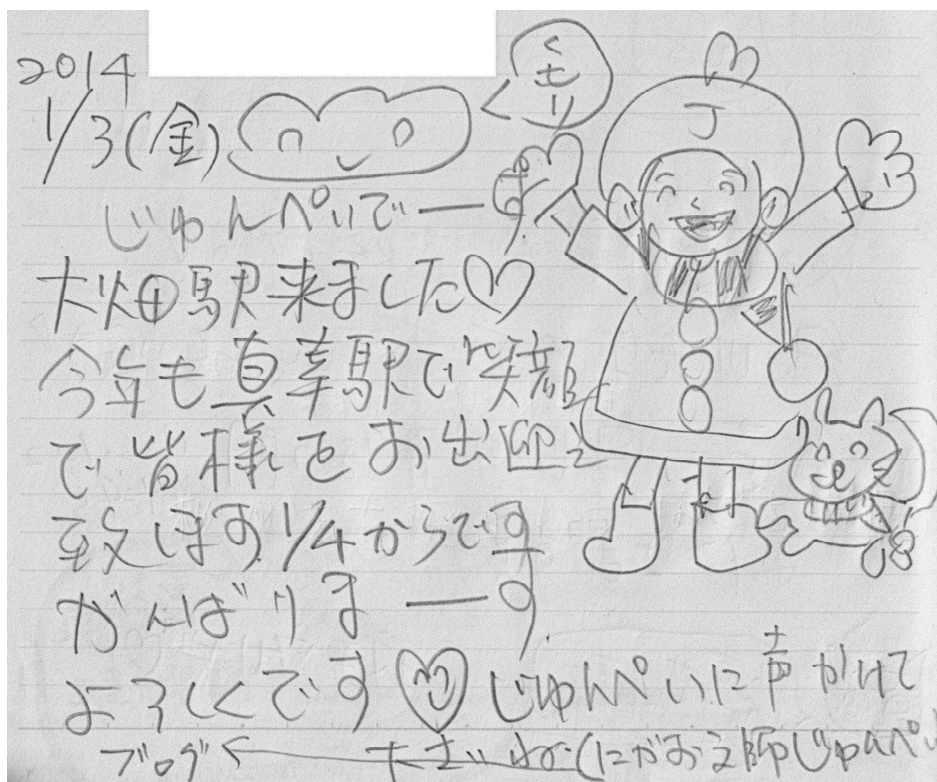 2014
1/3(金)
くもり
じゅんぺいでーす
大畑駅来ました♡
今年も真幸駅で笑顔
で皆様をお出迎え
致します 1/4からです
がんばりまーす
よろしくです♡じゅんぺいに声かけて
ブログ← ださいね(にがおえ師じゅんぺい
J